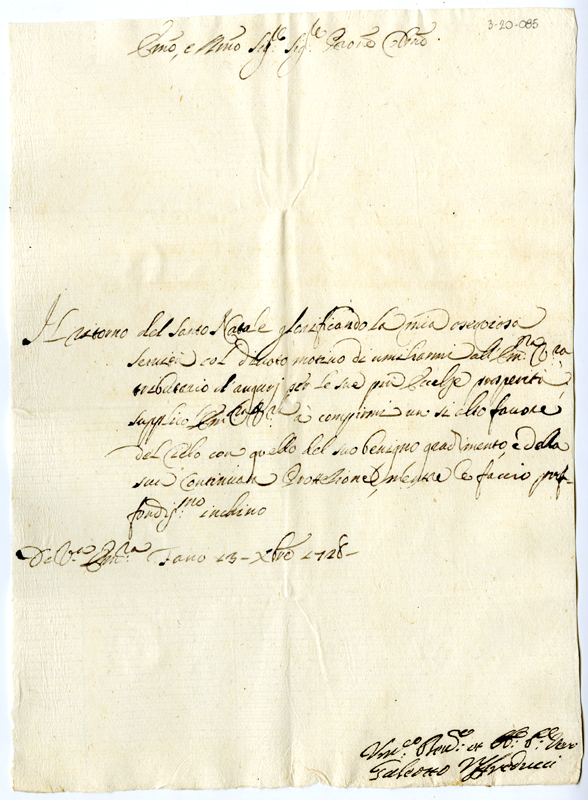 3-20-085
Emo, e Rmo Sigre Sigre Prone Colmo
Il ritorno del Santo Natale glorificando la mia ossequiosa
servitù col divoto motivo di umiliarmi all' Emza Vra
tributario d'augurj per le sue più eccelse prosperità
supplico Emza Vra à compirmi un sì alto favore
del Cielo con quello del suo benigno gradimento, e della
sua continuata Protezzione, mentre le faccio prof-
fondissmo inchino
De Vra Emza Fano 13 Xbre 1728
Umo Devmo et Obmo Serre Vero
Galeotto Uffreducci